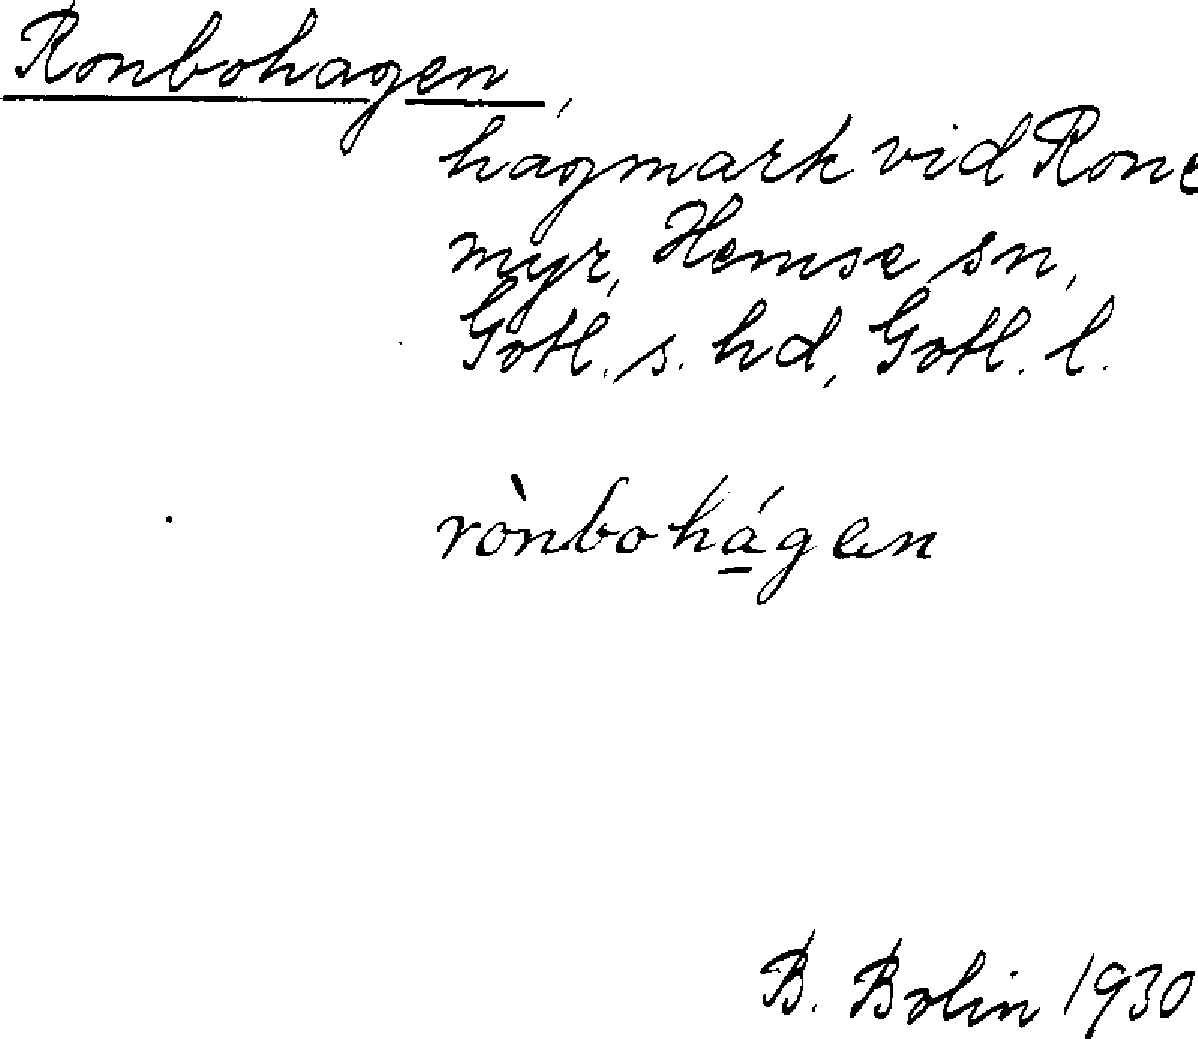 Ronbohagen,
hagmark vid Rone
myr, Hemse sn,
Gotl. s. hd, Gotl. l.
rònbohá̱gen
B. Bolin 1930